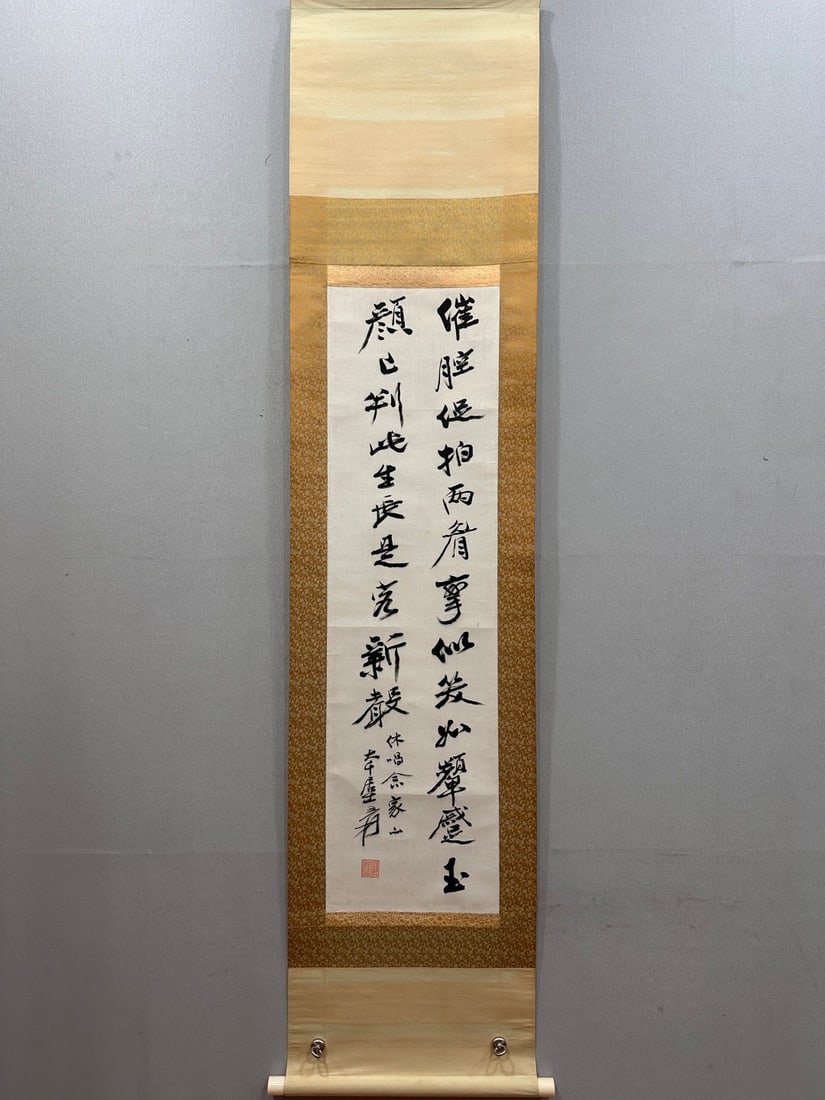 催腔促拍兩眉似笑如顰蹙玉
顏已判此生長是客新聲
休唱念家山
大千居士爰